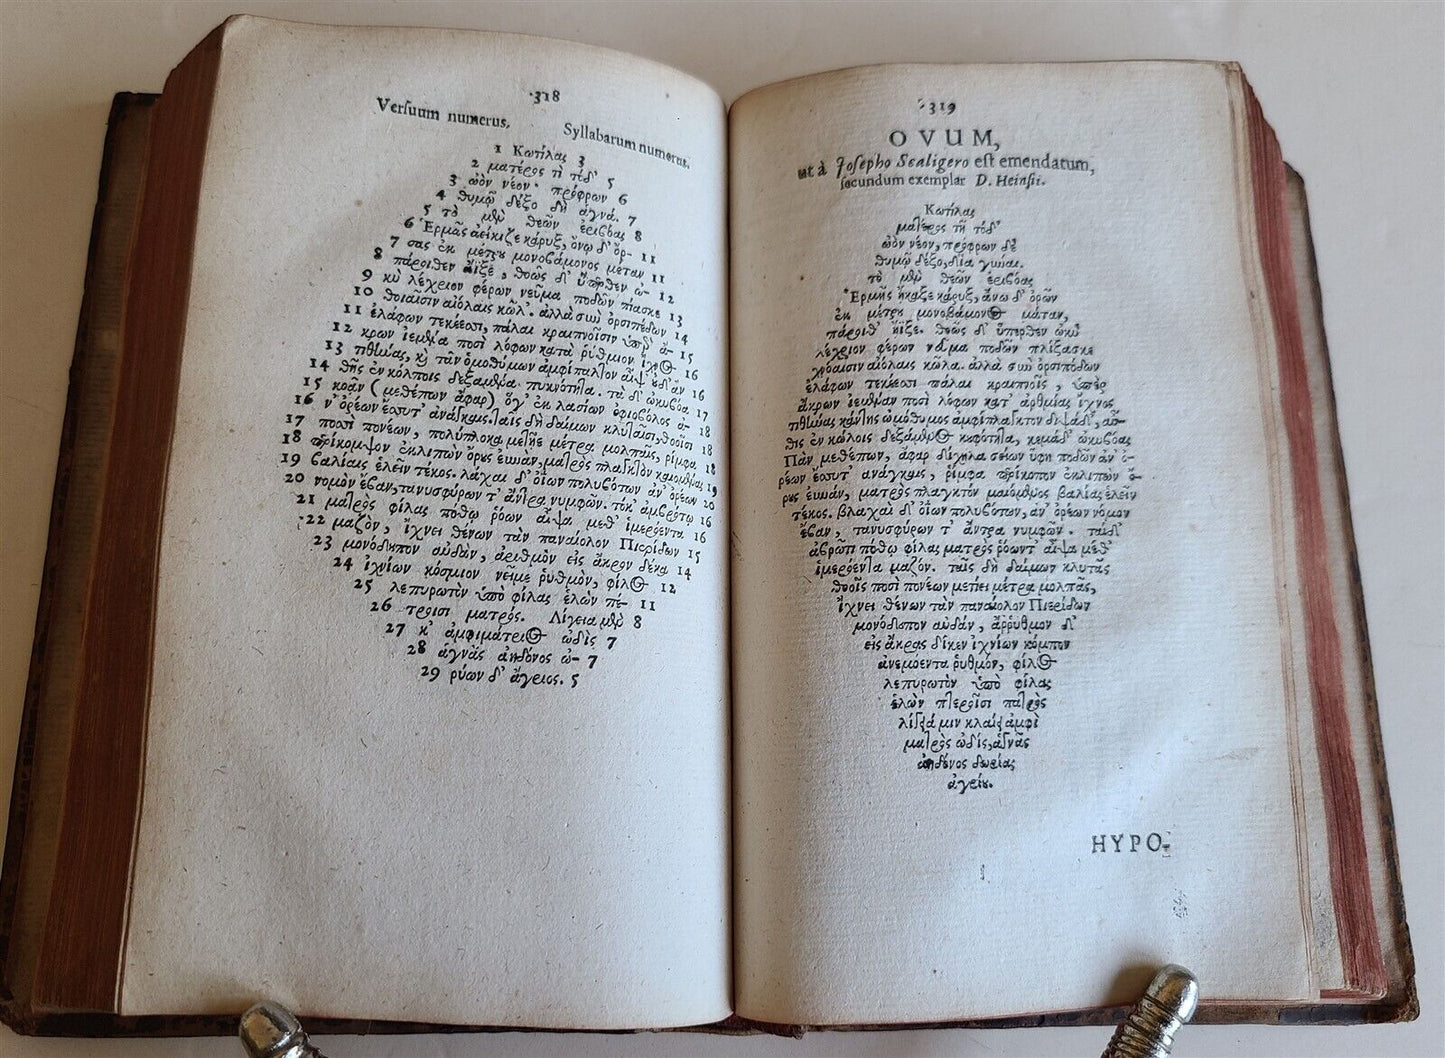 318
Versuum numerus. Syllabarum numerus.
1 Κωτίλας 3
2 ματέρος τῆ τόδ' 5
3 ὠὸν νέον· πρόφρων 6
4 θυμῷ δέξο δὴ ἁγνά. 7
5 τὸ μὲν θεῶν ἐριβόας 8
6 Ἑρμᾶς ἀείκιζε κάρυξ, ἄνω δ' ὅρ- 11
7 σας ἐκ μέτρου μονοβάμονος μέταν 11
8 πάροιθεν ἄϊξε, θοῶς δ' ὕπερθεν ὠ- 12
9 κὺ λέχριον φέρων νεῦμα ποδῶν πίασκε 13
10 θοιαῖσιν αἰόλαις κῶλ'. ἀλλὰ σὺν ὀρσιπόδων 14
11 ἐλάφων τεκέεσσι, πάλαι κραιπνοῖσιν ὑπὲρ ἀ- 15
12 κρων ἱεμένα ποσὶ λόφων κατὰ ῥύθμιον ἴχνος 16
13 τιθήνας, καὶ τὰν ὁμοθύμων ἀμφίπαλτον αἶψ' 16
14 θῆς ἐν κόλποις δεξαμένα. πυκνότητα. τὰ δ' ὠκυβόα 17
15 κοᾶν (μεθέπων ἄφαρ) ὅγ' ἐκ λασίων ὀφιοβόλος ἀ- 18
16 ν' ὀρέων ἔσσυτ' ἀνάγκαις. ταῖς δὴ δαίμων κλυταῖσι, θοοῖσι 18
17 ποσὶ πονέων, πολύπλοκα μετίησι μέτρα μολπαῖς, ῥίμφα 18
18 πρίκομψον ἐκλιπὼν ὄρυς εὐνὰν, ματρὸς πλαγκτὸν 19
19 βαλίαις ἑλεῖν τέκος. λάχαι δ' οἴων πολυβότων ἀν' ὀρέων 20
20 νομὸν ἔβαν, τανυσφύρων τ' ἄντρα νυμφῶν. τόκ' ἀμβρότῳ 16
21 ματρὸς φίλας πόθῳ ῥόων αἶψα μεθ' ἱμερόεντα 16
22 μαζὸν, ἴχνει θένων τὰν παναίολον Πιερίδων 15
23 μονόδουπον αὐδὰν, ἀριθμὸν εἰς ἄκραν δέκα 14
24 ἰχνίων κόσμιον νεῖμε ῥυθμὸν, φῦλος 12
25 λεπυρωτὸν ὑπὸ φίλας ἑλὼν πέ- 11
26 τροισι ματρός. Λίγεια μὲν 8
27 κ' ἀμφιμάτριος ὠδὶς 7
28 ἁγνᾶς ἀηδόνος ὠ- 7
29 ρύων δ' ἄγριος. 5
319
OVUM,
ut à Josepho Scaligero est emendatum,
secundum exemplar D. Heinsii.
Κωτίλας
ματέρος τῆ τόδ'
ὠὸν νέον, πρόφρων δὲ
θυμῷ δέξο, δῖα γύναι.
τὸ μὲν θεῶν ἐριβόας
Ἑρμῆς ἥκαξε κάρυξ, ἄνω δ' ὀρῶν
ἐκ μέτρου μονοβάμονος μέταν,
πάροιθ' ἤϊξε. θοῶς δ' ὕπερθεν ὠκὺ
λέχριον φέρων νεῦμα ποδῶν πλίξασκε
χροάισιν αἰόλαις κῶλα. ἀλλὰ σὺν ὀρσιπόδων
ἐλάφων τεκέεσσι πάλαι κραιπνοῖς, ὑπὲρ
ἄκρων ἱεμέναν ποσὶ λόφων κατ' ἀρθμίας ἴχνος
τιθήνας κάντης ὠμόθυμος ἀμφίπλακτον
θις ἐν κώλοις δεξάμενος κεφότητα, κεμάδ' ὠκυβόας
Πὰν μεθέπων, ἄφαρ δίχηλα σείων ὕφη ποδῶν ἀν' ὀ-
ρέων ἔσσυτ' ἀνάγκαις, ῥίμφα πρίκοπον ἐκλιπὼν ὄ-
ρυς εὐνὰν, ματρὸς πλαγκτὸν μαιόμενος βαλίας ἑλεῖν
τέκος. βλαχαὶ δ' οἴων πολυβότων, ἀν' ὀρέων νόμον
ἔβαν, τανυσφύρων τ' ἄντρα νυμφῶν. ταίδ'
ἀβρῶτι πόθῳ φίλας ματρὸς ῥώοντ' αἶψα μεθ'
ἱμερόεντα μαζόν. ταῖς δὴ δαίμων κλυτᾶς
θοοῖς ποσὶ πονέων μετίει μέτρα μολπᾶς,
ἴχνει θένων τὰν παναίολον Πιερίδων
μονόδουπον αὐδάν, ἄρρυθμον δ'
εἰς ἄκρας δίκεν ἰχνίων κόμπον
ἀνεμόεντα ῥυθμὸν, φῦλος
λεπυρωτὸν ὑπὸ φίλας
ἑλὼν πτεροῖσι πατρὸς
λίγξά μιν κλαίξ' ἀμφὶ
ματρὸς ὠδὶς, ἁγνᾶς
ἀηδόνος δωρίας
ἀγρίου.
HYPO-